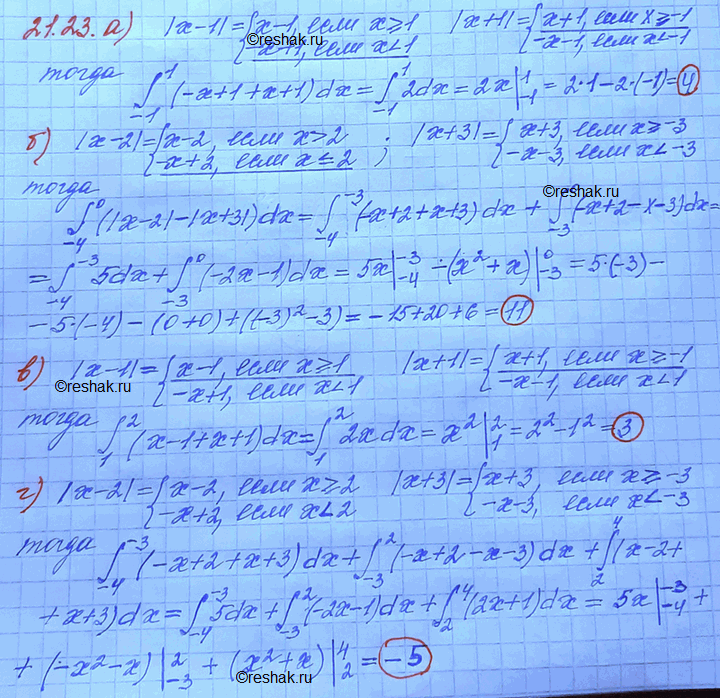 21.23. а) |x-1|={x-1, если x≥1 |x+1|={x+1, если x≥-1
-x+1, если x<1 -x-1, если x<-1
©reshak.ru
©reshak.ru
тогда ∫₋₁¹ (-x+1+x+1)dx=∫₋₁¹ 2dx=2x|₋₁¹=2·1-2·(-1)=4
б) |x-2|={x-2, если x>2 ; |x+3|={x+3, если x≥-3
-x+2, если x≤2 -x-3, если x<-3
тогда
©reshak.ru
∫₋₄⁰ (|x-2|-|x+3|)dx=∫₋₄⁻³ (-x+2+x+3)dx+∫₋₃⁰ (-x+2-x-3)dx=
=∫₋₄⁻³ 5dx+∫₋₃⁰ (-2x-1)dx=5x|₋₄⁻³-(x²+x)|₋₃⁰=5·(-3)-
-5·(-4)-(0+0)+((-3)²-3)=-15+20+6=11
в) |x-1|={x-1, если x≥1 |x+1|={x+1, если x≥-1
-x+1, если x<1 -x-1, если x<1
©reshak.ru
©reshak.ru
тогда ∫₁² (x-1+x+1)dx=∫₁² 2xdx=x²|₁²=2²-1²=3
г) |x-2|={x-2, если x≥2 |x+3|={x+3, если x≥-3
-x+2, если x<2 -x-3, если x<-3
тогда ∫₋₄⁻³ (-x+2+x+3)dx+∫₋₃² (-x+2-x-3)dx+∫₂⁴ (x-2+
+x+3)dx=∫₋₄⁻³ 5dx+∫₋₃² (-2x-1)dx+∫₂⁴ (2x+1)dx=5x|₋₄⁻³+
+(-x²-x)|₋₃²+(x²+x)|₂⁴=-5
©reshak.ru